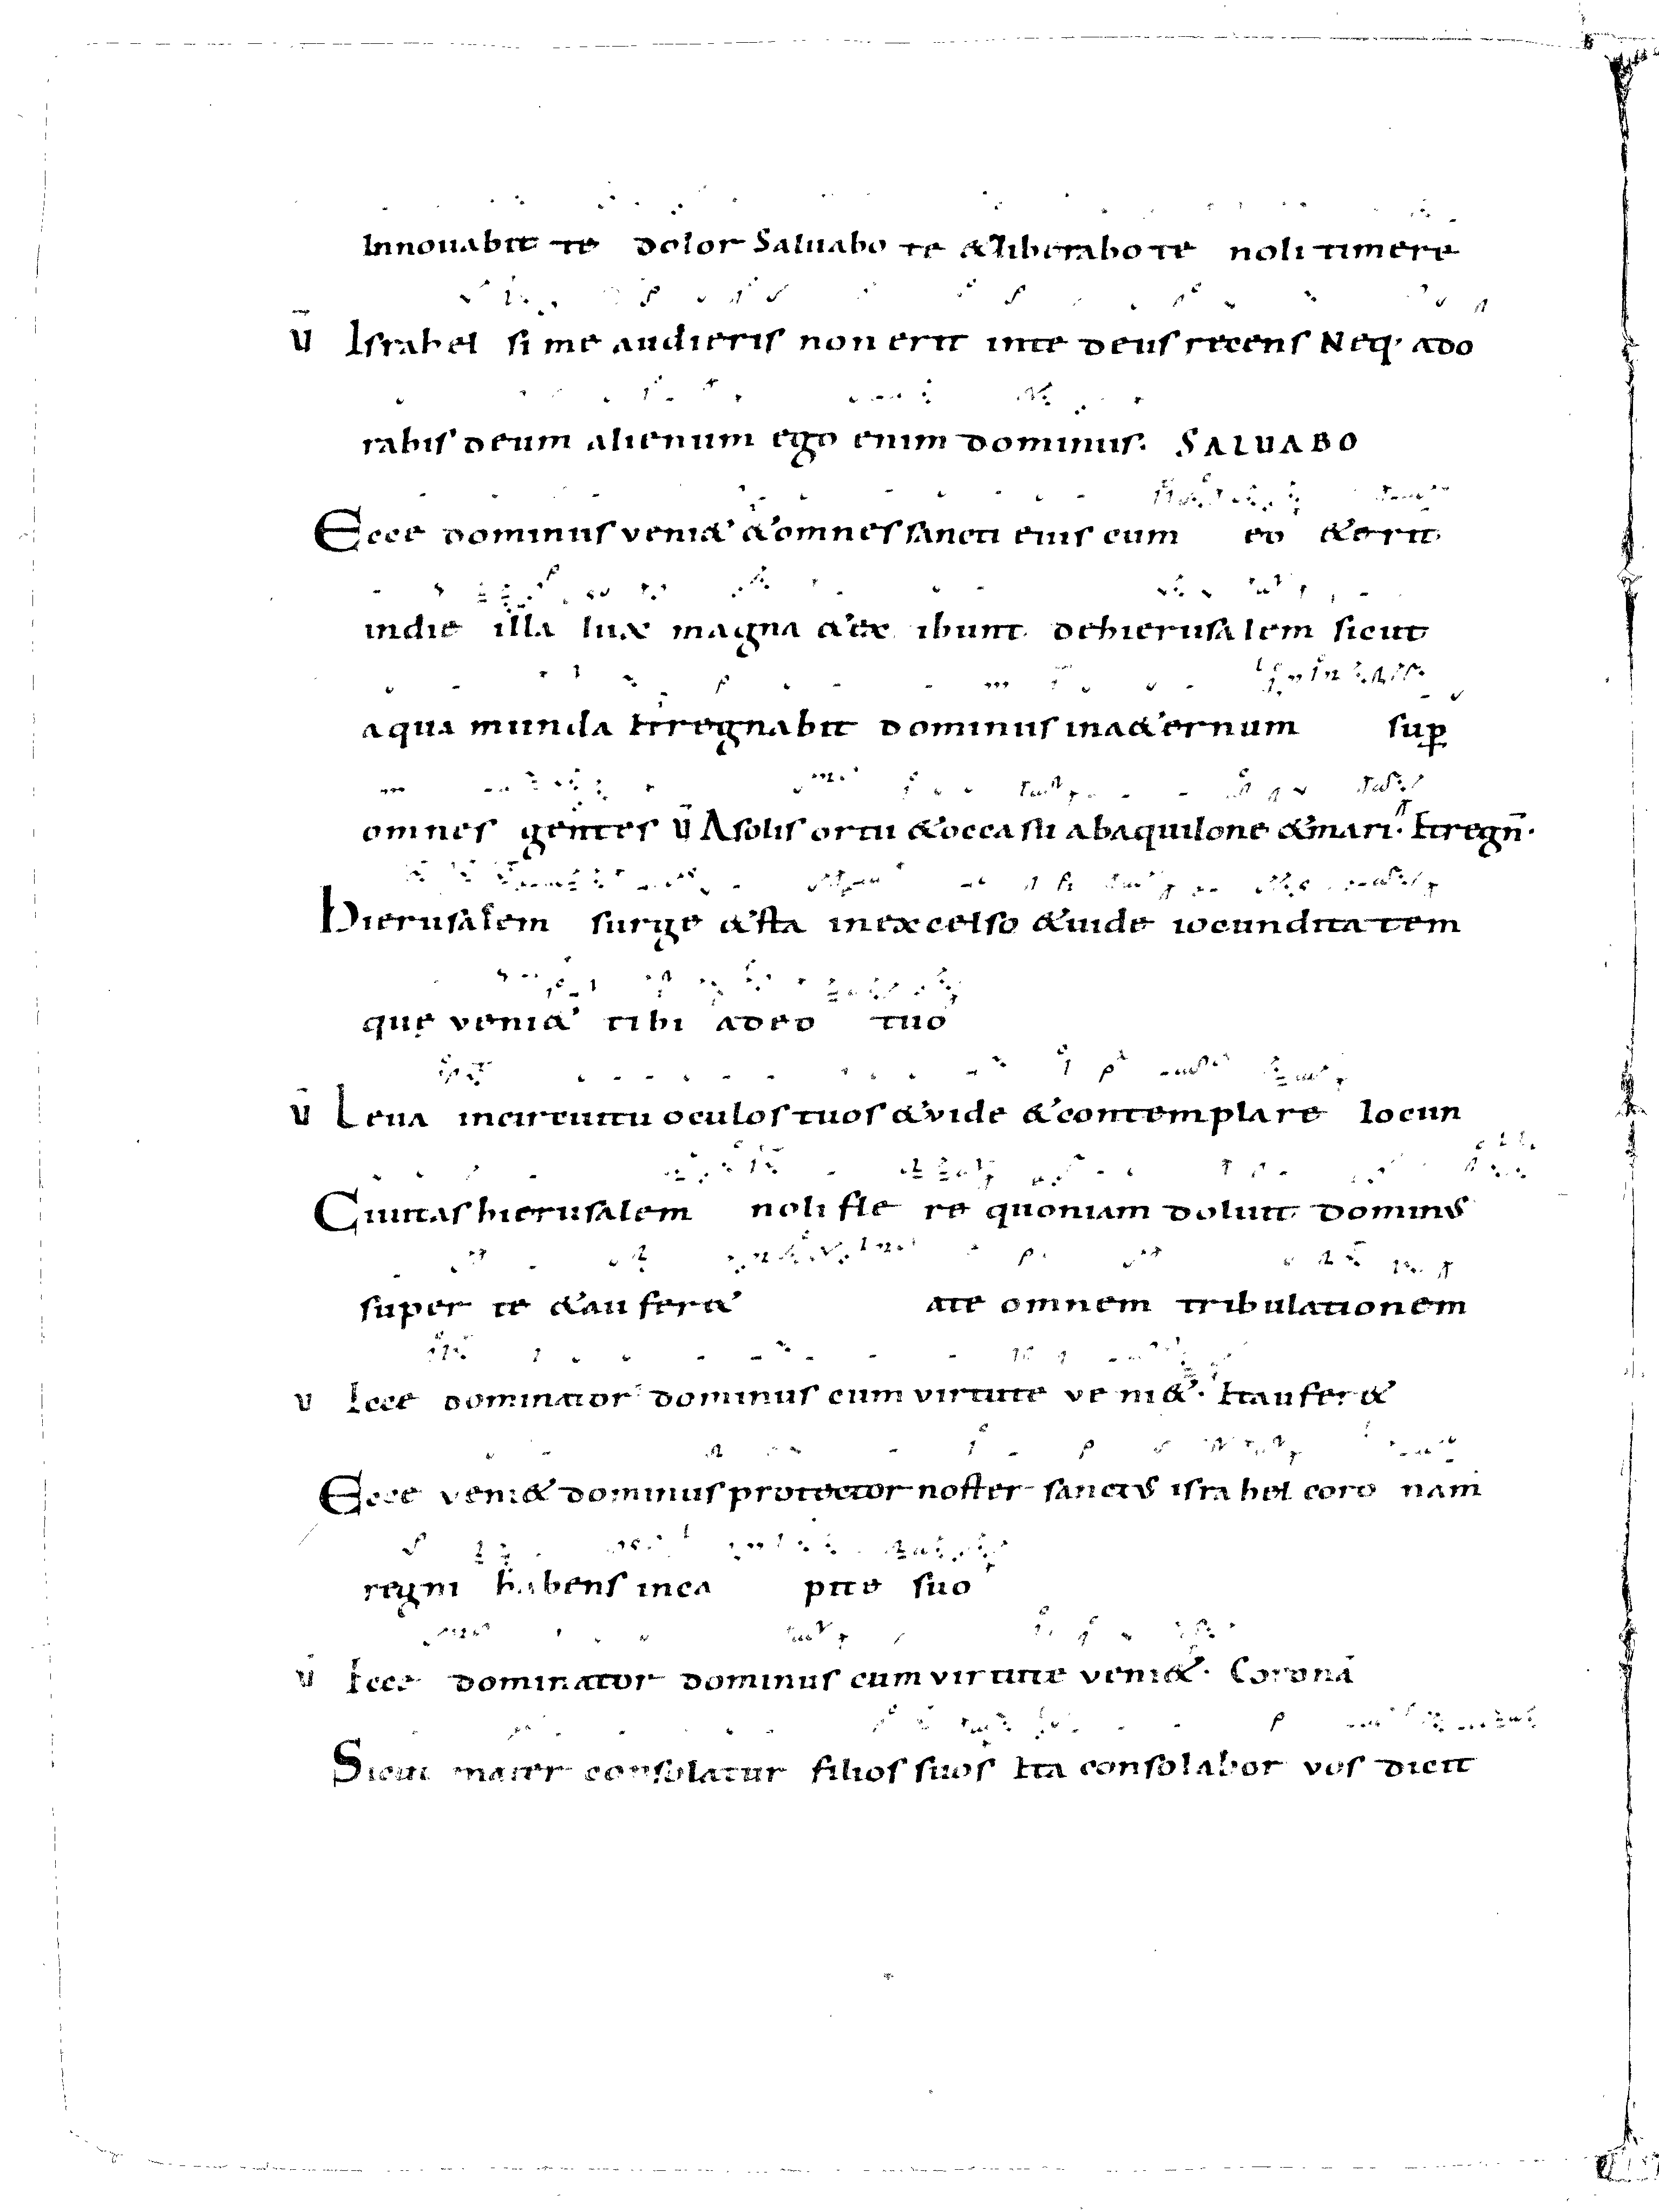 Innouabit te dolor Saluabo te & liberabo te noli timere
v̄ Israhel si me audieris non erit inte deus recens Neq· ado
rabis deum alienum ego enim dominus. SALUABO
Ecce dominus veni& & omnes sancti eius cum eo & erit
indie illa lux magna & ex ibunt dehierusalem sicut
aqua munda Etregnabit dominus ina&ernum sup̄
omnes gentes v̄ Asolis ortu & occasu abaquilone & mari. Etregn̄.
Hierusalem surge & sta inexcelso & uide iocunditatem
quę veni& tibi adeo tuo
v̄ Leua incircuitu oculos tuos & vide & contemplare Iocun
Ciuitas hierusalem noli fle re quoniam doluit dominus
super te & au fer& ate omnem tribulationem
v Ecce dominator dominus cum virtute ve ni&. Etaufer&
Ecce veni& dominus protector noster sanctus isra hel coro nam
regni habens inca pite suo
v̄ Ecce dominator dominus cum virtute veni&. Coronā
Sicut mater consolatur filios suos Ita consolabor vos dicit